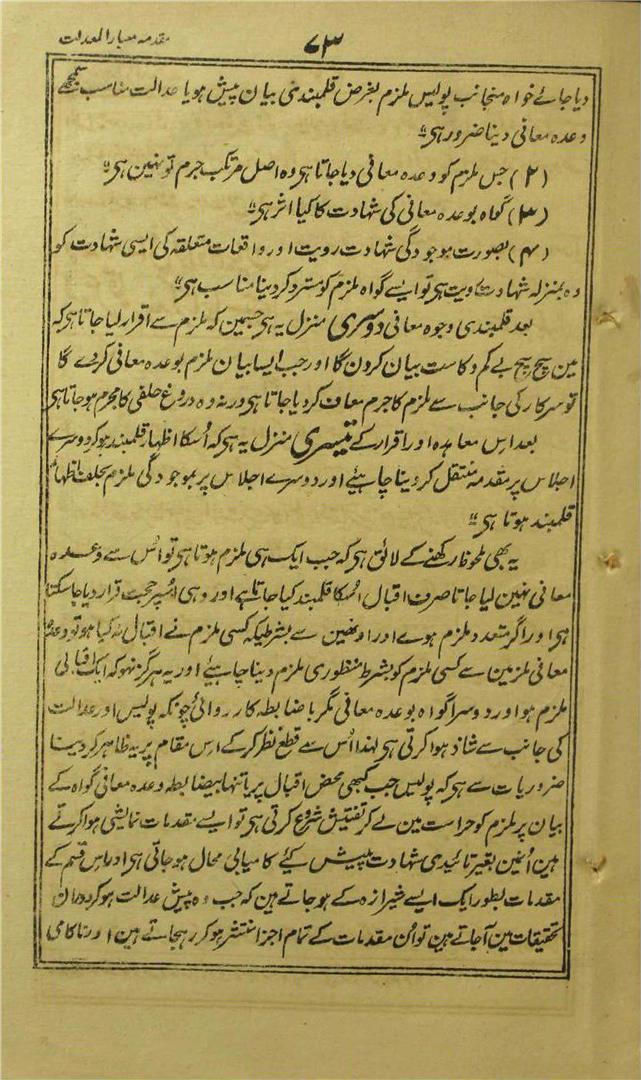 ۷۳
مقدمہ معیار المعدلت
دیا جائے خواہ منجانب پولیس ملزم بغرض قلمبندی بیان پیش ہو یا عدالت مناسب سمجھے
وعدہ معافی دینا ضرور ہی؛؛
(۲) جس ملزم کو وعدہ معافی دیا جاتا ہی وہ اصل مرتکب جرم تو نہین ہی؛؛
(۳) گواہ بوعدہ معافی کی شہادت کا کیا اثر ہی؛؛
(۴) بصورت موجودگی شہادت رویت اور واقعات متعلقہ کی ایسی شہادت کو
وہ بمنزلہ شہادت رویت ہی تو ایسے گواہ ملزم کو مسترد کر دینا مناسب ہی؛؛
بعد قلمبندی وجوہ معافی دوسری منزل یہ ہی جسمین کہ ملزم سے اقرار لیا جاتا ہی کہ
مین سچ سچ بے کم و کاست بیان کرون گا اور جب ایسا بیان ملزم بوعدہ معافی کر دے گا
تو سرکار کی جانب سے ملزم کا جرم معاف کر دیا جاتا ہی ورنہ وہ دروغ حلفی کا مجرم ہو جاتا ہی
بعد اس معاہدہ اور اقرار کے تیسری منزل یہ ہی کہ اُسکا اظہار قلمبند ہو کر دوسرے
اجلاس پر مقدمہ منتقل کر دینا چاہیئے اور دوسرے اجلاس پر بموجودگی ملزم بحلف اظہار
قلمبند ہوتا ہی؛؛
یہ بھی ملحوظ رکھنے کے لائق ہی کہ جب ایک ہی ملزم ہوتا ہی تو اُس سے وعدہ
معافی نہین لیا جاتا صرف اقبال اُسکا قلمبند کیا جاتا ہے اور وہی اُسپر حجت قرار دیا جا سکتا
ہی اور اگر متعدد ملزم ہوے اور اونھین سے بشرطیکہ کسی ملزم نے اقبال نہ کیا ہو تو وعدہ
معافی ملزمین سے کسی ملزم کو بشرط منظوری ملزم دینا چاہیئے اور یہ ہرگز نہو کہ ایک اقبالی
ملزم ہو اور دوسرا گواہ بوعدہ معافی مگر باضابطہ کارروائی چونکہ پولیس اور عدالت
کی جانب سے شاذ ہوا کرتی ہی لہذا اُس سے قطع نظر کر کے اس مقام پر یہ ظاہر کر دینا
ضروریات سے ہی کہ پولیس جب کبھی محض اقبال پر یا تنہا بیضابطہ وعدہ معافی گواہ کے
بیان پر ملزم کو حراست مین لے کر تفتیش شروع کرتی ہی تو ایسے مقدمات نمایشی ہوا کرتے
ہین اُنمین بغیر تائیدی شہادت پیش کیئے کامیابی محال ہو جاتی ہی اور اس قسم کے
مقدمات بطور ایک ایسے شیرازہ کے ہو جاتے ہین کہ جب وہ پیش عدالت ہو کر دوران
تحقیقات مین آجاتے ہین تو اُن مقدمات کے تمام اجزا منتشر ہو کر رہجاتے ہین اور ناکامی